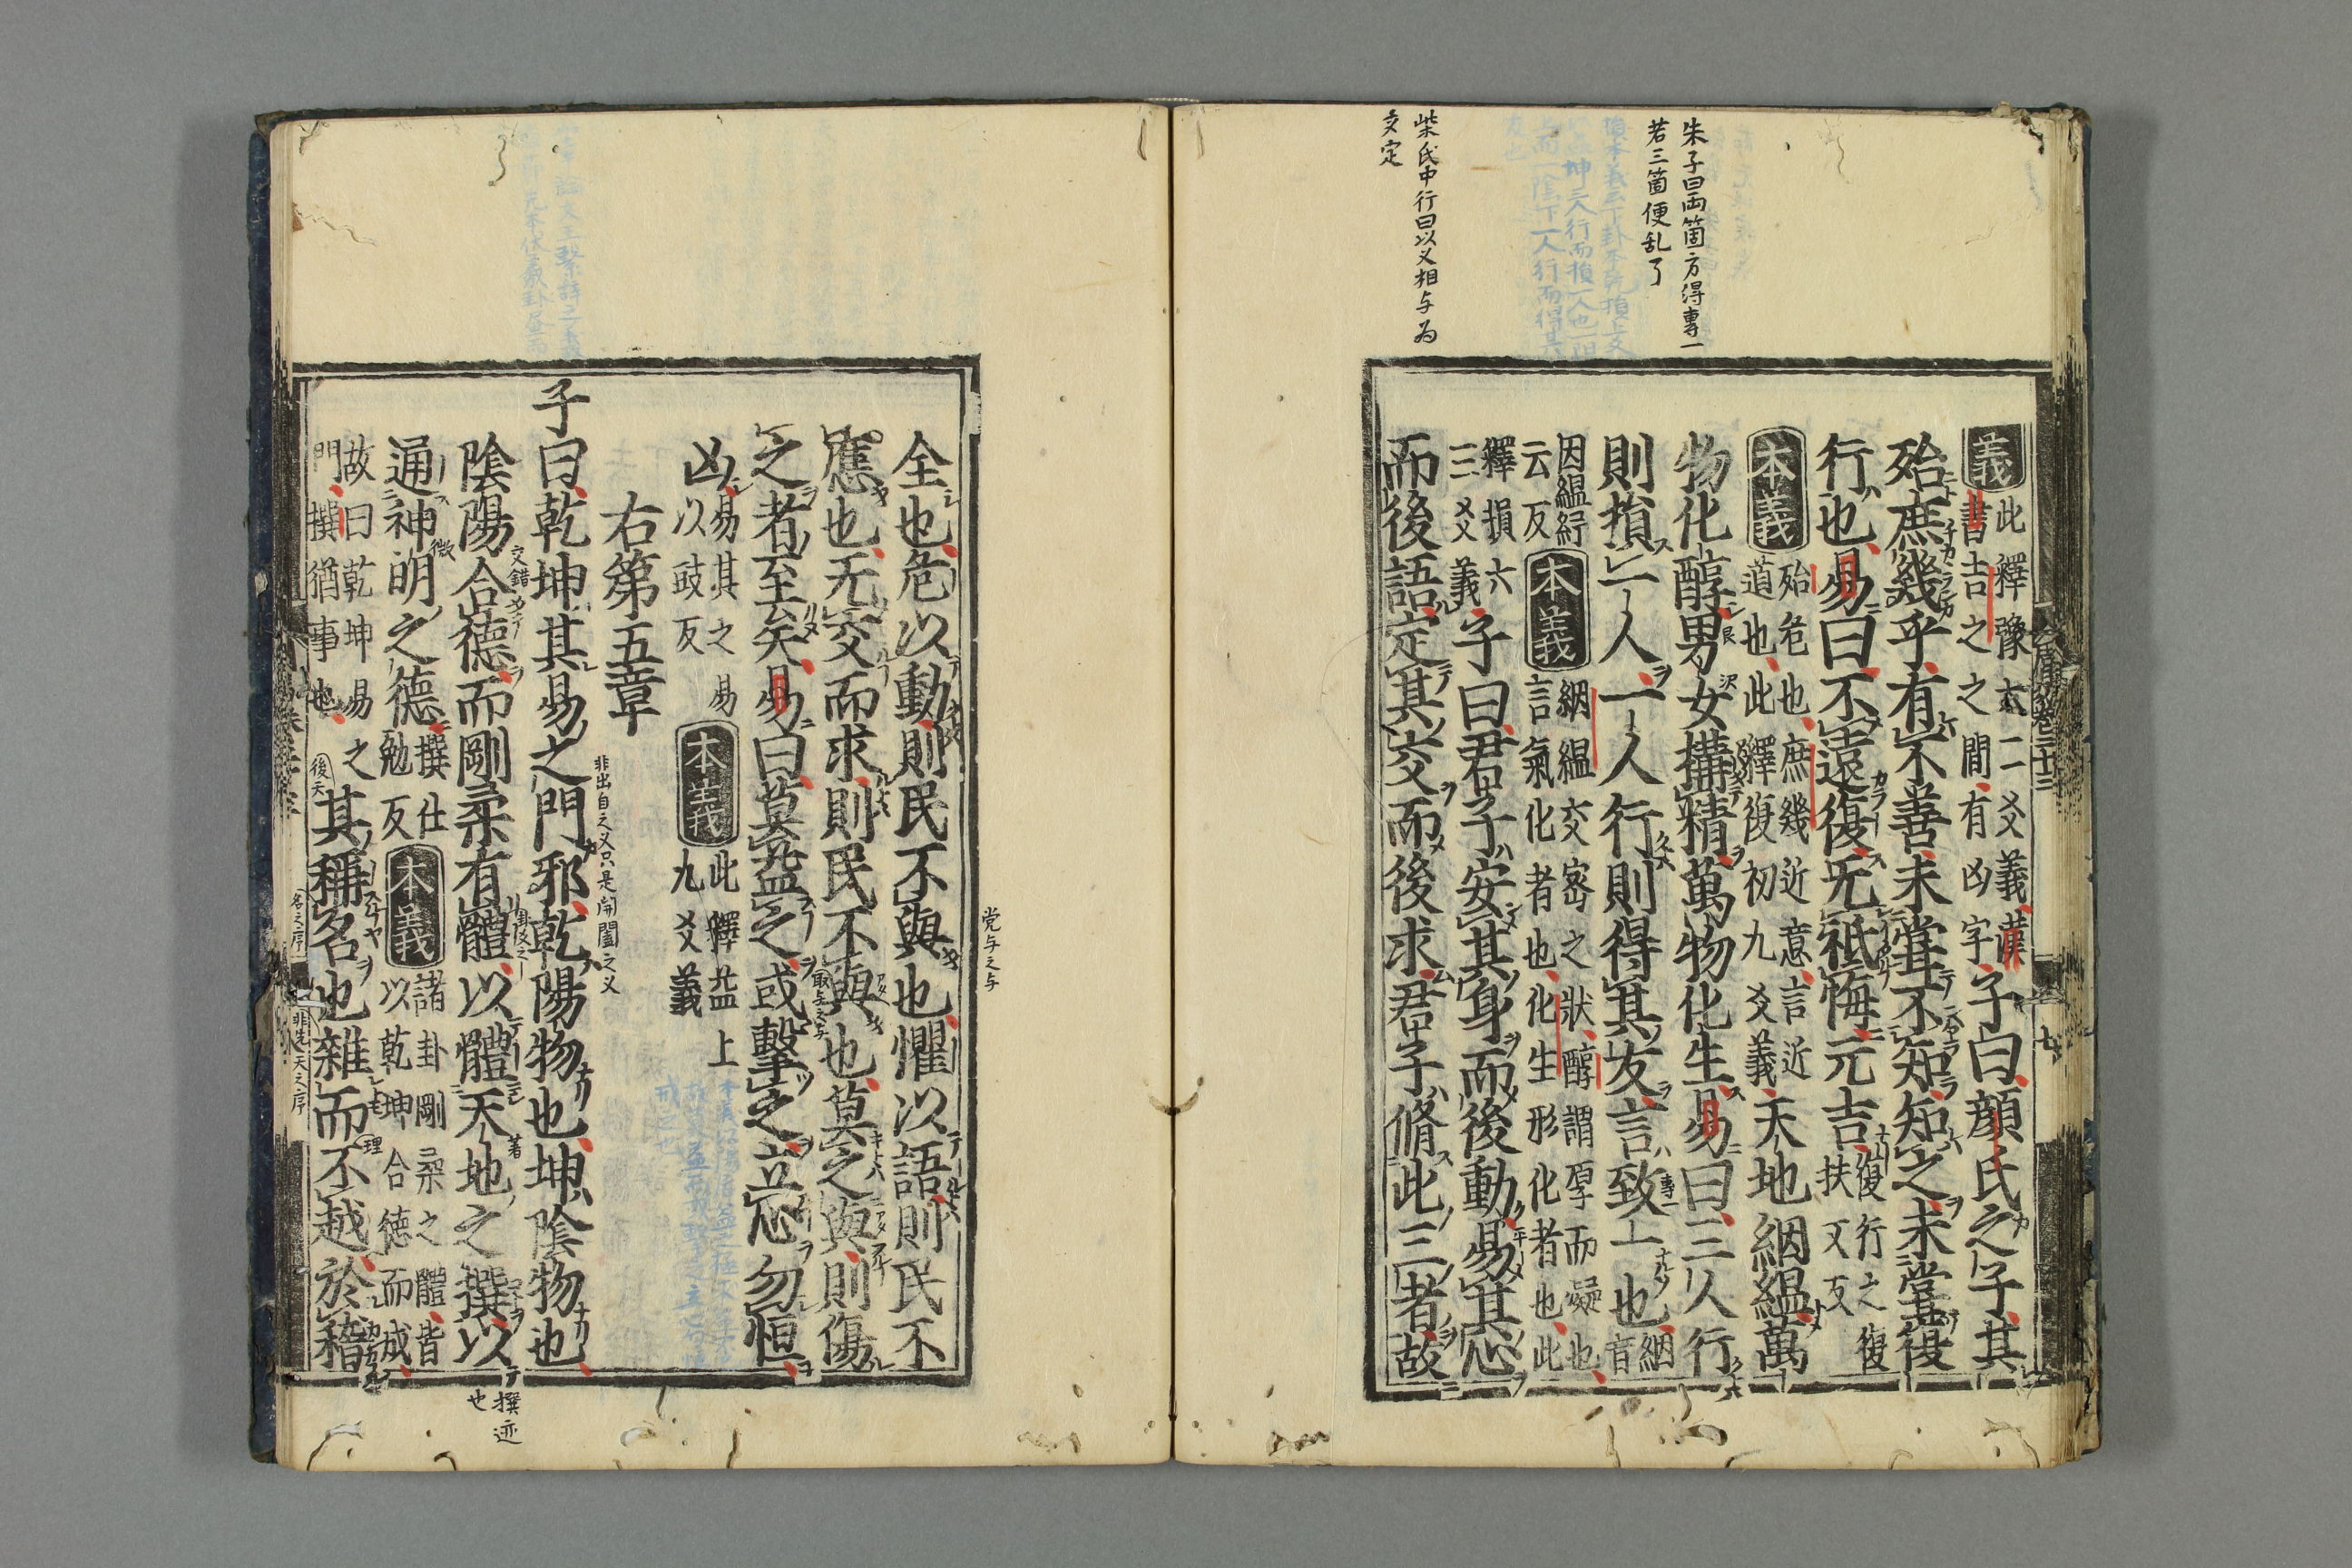 朱子曰両箇方得專一
若三箇便乱了
柴氏中行曰以义相与為
交定
義 此釋豫六二爻義漢
書吉之之間有凶字 子曰顔氏之子其
殆庶幾乎有不善未嘗不知知之未嘗復
行也易曰不遠復无祗悔元吉 復行之復
扶又反
本義 殆危也庶幾近意言近
道也此釋復初九爻義 天地絪縕萬
物化醇男女構精萬物化生易曰三人行
則損一人一人行則得其友言致一也 絪
音
因縕紆
云反 本義 絪縕交密之狀醇謂厚而凝也
言氣化者也化生形化者也此
釋損六
三爻義 子曰君子安其身而後動易其心
而後語定其交而後求君子脩此三者故
全也危以動則民不與也懼以語則民不
應也无交而求則民不與也莫之與則傷
之者至矣易曰莫益之或擊之立心勿恒
凶 易其之易
以豉反 本義 此釋益上
九爻義
右第五章
子曰乾坤其易之門邪乾陽物也坤陰物也
陰陽合德而剛柔有體以體天地之撰以
通神明之德 撰仕
勉反 本義 諸卦剛柔之體皆
以乾坤合徳而成
故曰乾坤易之
門撰猶事也 其稱名也雜而不越於稽
党与之与
非出自之义只是開闔之义
交錯
撰迹
也
後天